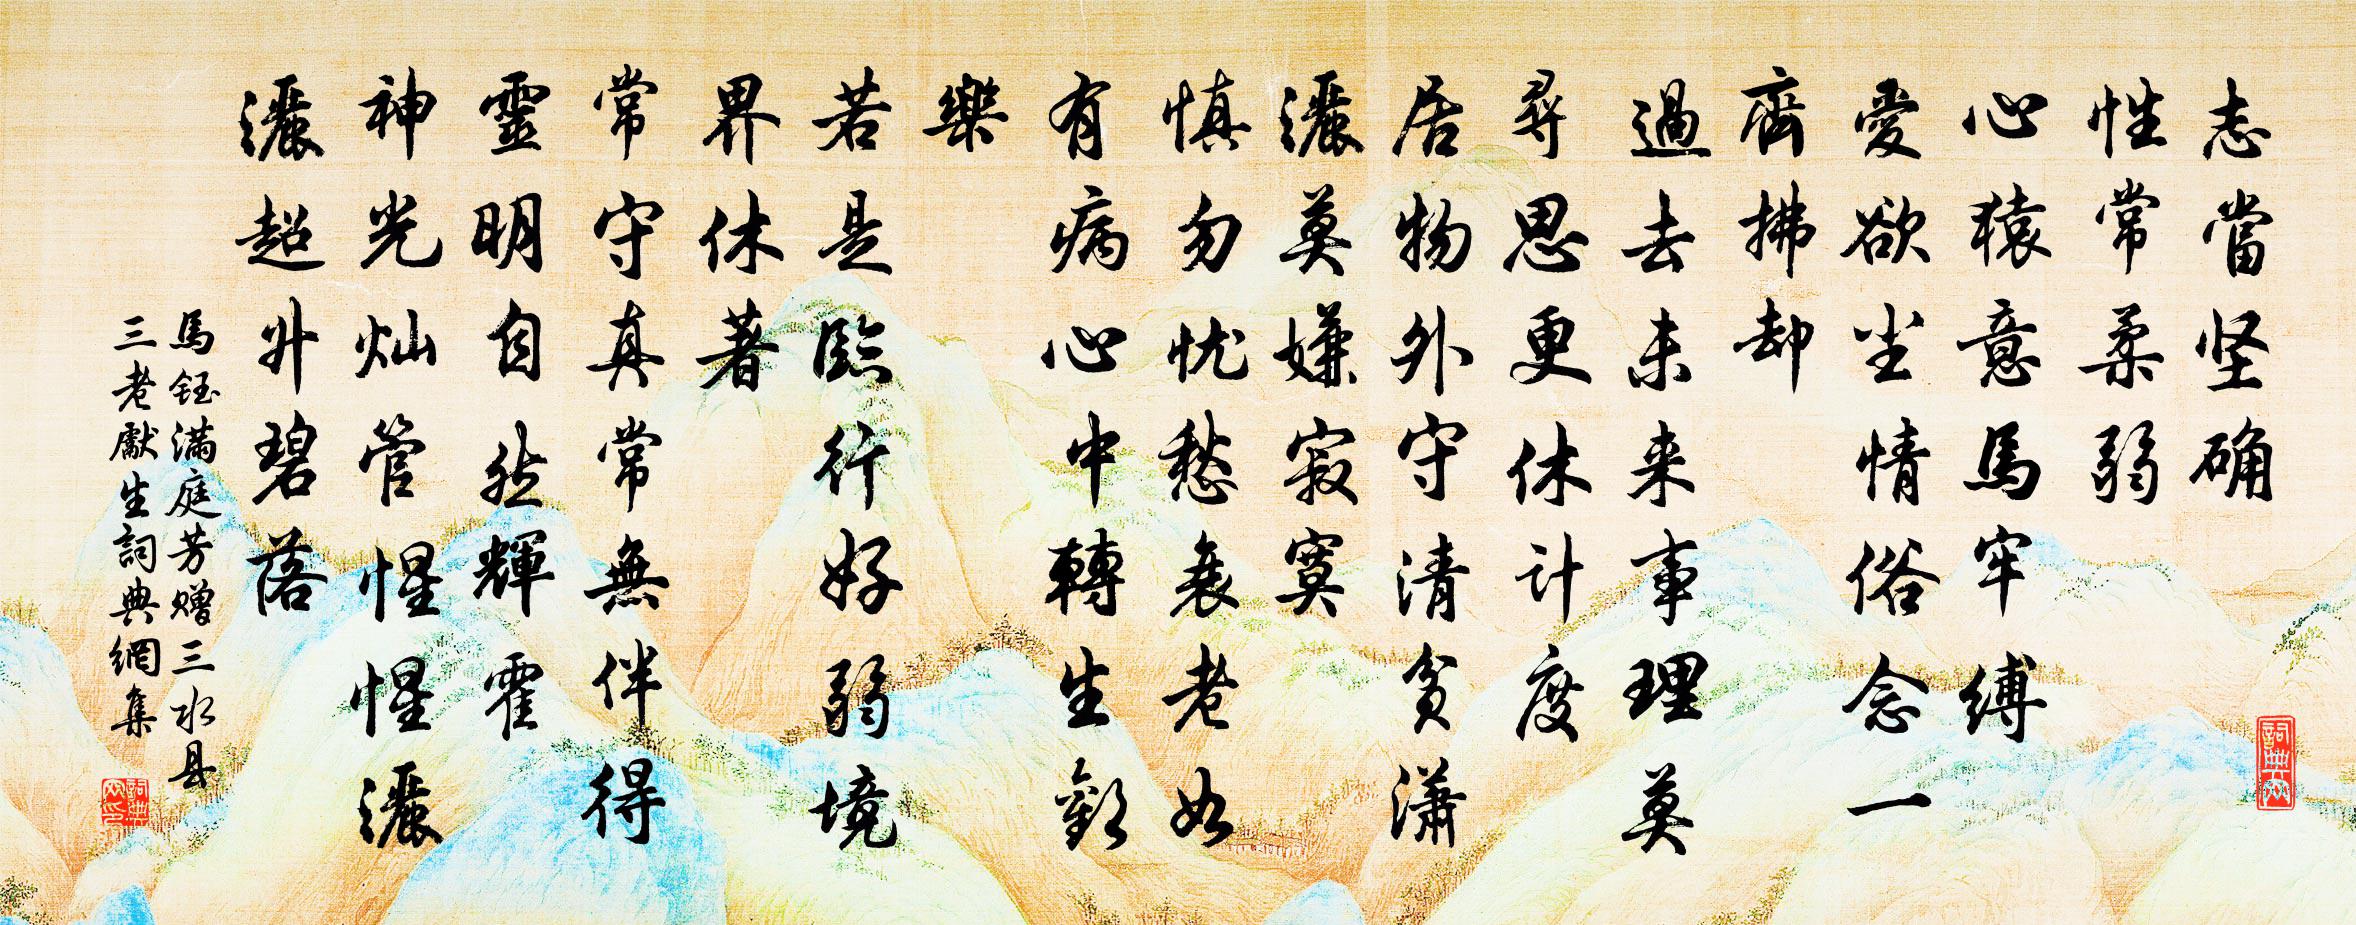 志當坚确
性常柔弱
心猿意馬牢缚
愛欲尘情俗念一
齊拂却
過去未来事理莫
尋思更休计度
居物外守清貧瀟
灑莫嫌寂寞
慎勿忧愁衰老如
有病心中轉生歡
樂
若是臨行好弱境
界休著
常守真常無伴得
靈明自然輝霍
神光灿管惺惺灑
灑超升碧落
馬钰满庭芳赠三水县
三老獻生詞典網集
詞典网
詞典网印